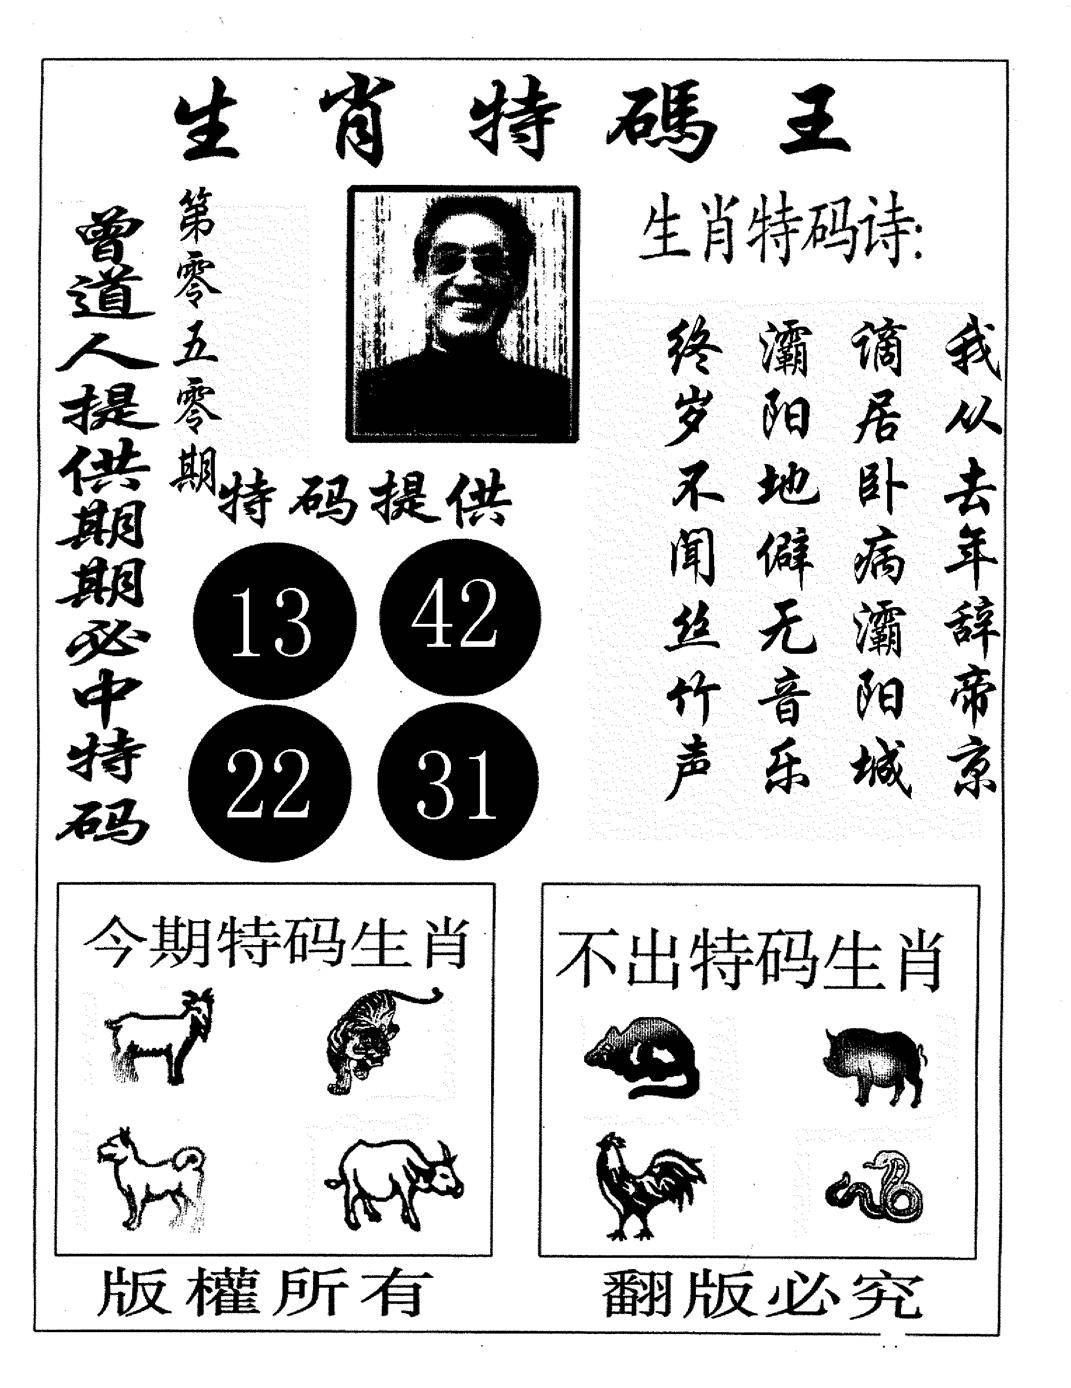 生肖特碼王
曾道人提供期期必中特码
第零五零期
生肖特码诗:
我从去年辞帝京
谪居卧病灞阳城
灞阳地僻无音乐
终岁不闻丝竹声
特码提供
13 42
22 31
今期特码生肖
不出特码生肖
版權所有
翻版必究